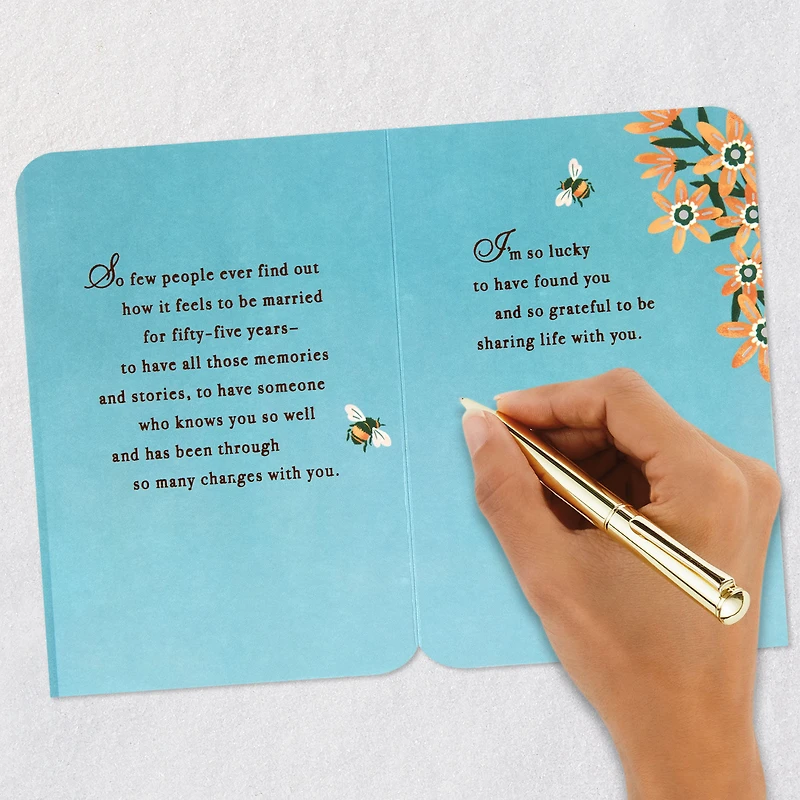 So few people ever find out
how it feels to be married
for fifty-five years–
to have all those memories
and stories, to have someone
who knows you so well
and has been through
so many changes with you.
I'm so lucky
to have found you
and so grateful to be
sharing life with you.